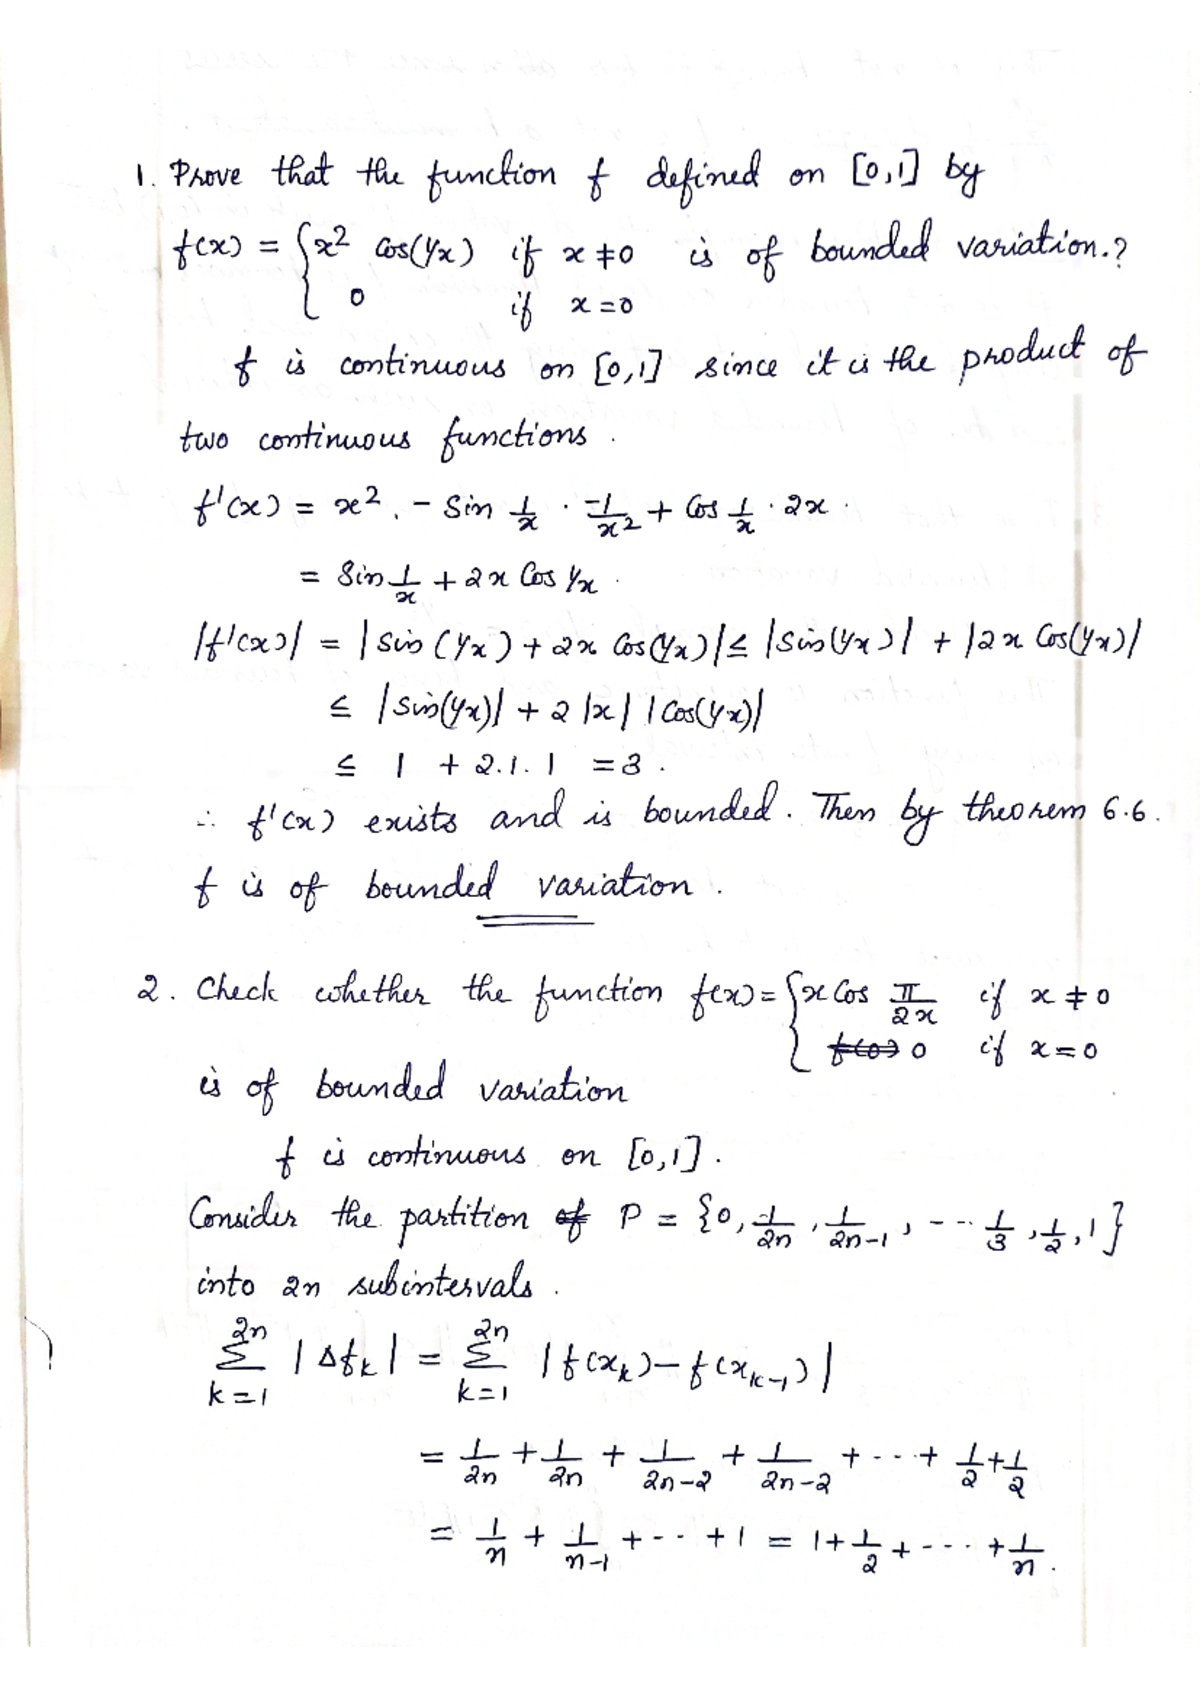 1. Prove that the function f defined on [0,1] by
f(x) = { x² cos(1/x) if x ≠ 0 is of bounded variation.?
0 if x = 0
f is continuous on [0,1] since it is the product of
two continuous functions.
f'(x) = x² . - Sin 1/x . -1/x² + Cos 1/x . 2x .
= Sin 1/x + 2x Cos 1/x .
|f'(x)| = | Sin (1/x) + 2x Cos(1/x) | ≤ |Sin(1/x)| + |2x Cos(1/x)|
≤ |Sin(1/x)| + 2 |x| |Cos(1/x)|
≤ 1 + 2.1.1 = 3 .
∴ f'(x) exists and is bounded. Then by theorem 6.6.
f is of bounded variation .
2. Check whether the function f(x) = { x Cos π/2x if x ≠ 0
f(0) 0 if x = 0
is of bounded variation
f is continuous on [0,1] .
Consider the partition of P = {0, 1/2n , 1/2n-1 , --- 1/3 , 1/2 , 1}
into 2n subintervals .
2n Σ k=1 | Δf_k | = 2n Σ k=1 | f(x_k) - f(x_k-1) |
= 1/2n + 1/2n + 1/2n-2 + 1/2n-2 + --- + 1/2 + 1/2
= 1/n + 1/n-1 + --- + 1 = 1 + 1/2 + --- + 1/n .